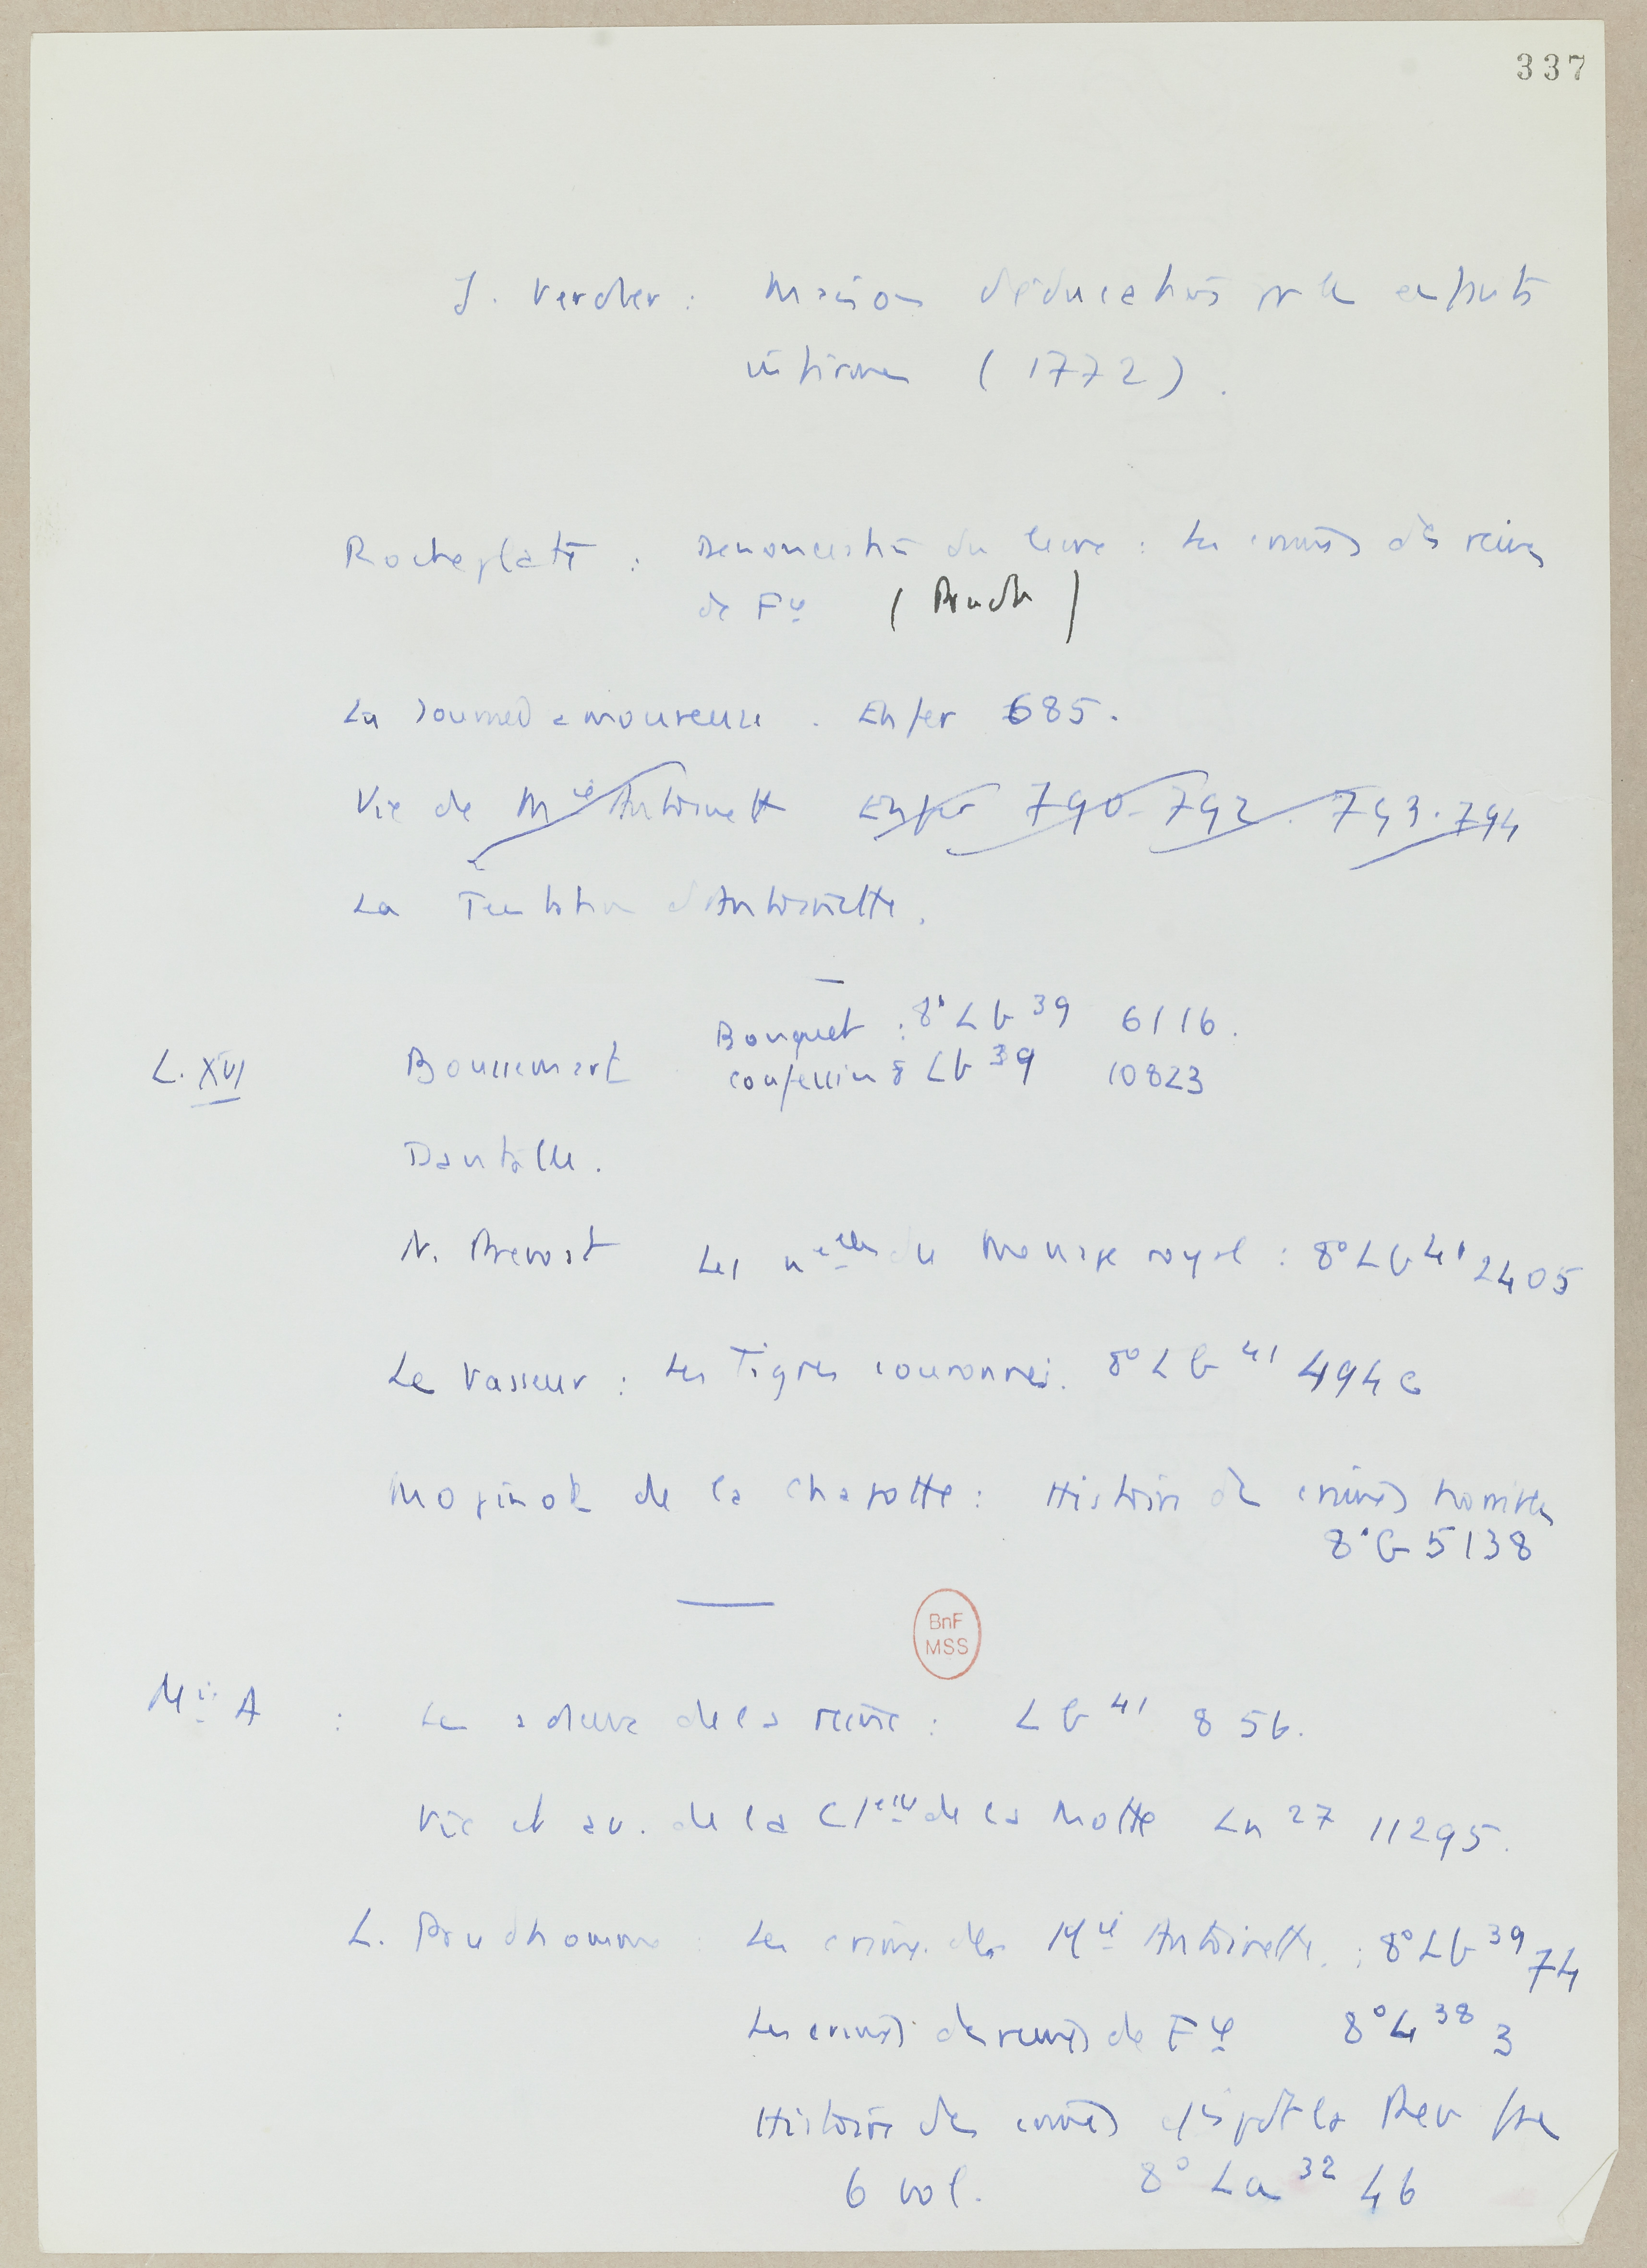 337
J. Verdier : Maison d'éducation pr les enfants
infirmes (1772).
Rocheplate : Dénonciation du livre : Les crimes des reines
de Fce (Prudh )
La Journée amoureuse . Enfer 685.
Vie de Mie Antoinette Enfer 790. 792. 793. 794
La Tentation d'Antoinette.
Bouquet : 8° Lb 39 6116.
L. XVI Boussemart confession 8 Lb 39 10823
Dantalle.
N. Prevost Les nelles du Menage royal : 8° Lb 41 2405
Le Vasseur : Les Tigres couronnés. 8° Lb 41 4940
Mopinot de la Chapotte : Histoire des crimes
8° G 5138
BnF
MSS
Mie A : Les adieux de la reine : Lb 41 856.
Vie et av. de la Ctesse de la Motte Ln 27 11295.
L. Prudhomme : Les crimes de Mie Antoinette. : 8° Lb 39 74
Les crimes des reines de Fce 8° L 38 3
Histoire des crimes cis pdt la Rev fse
6 vol. 8° La 32 46